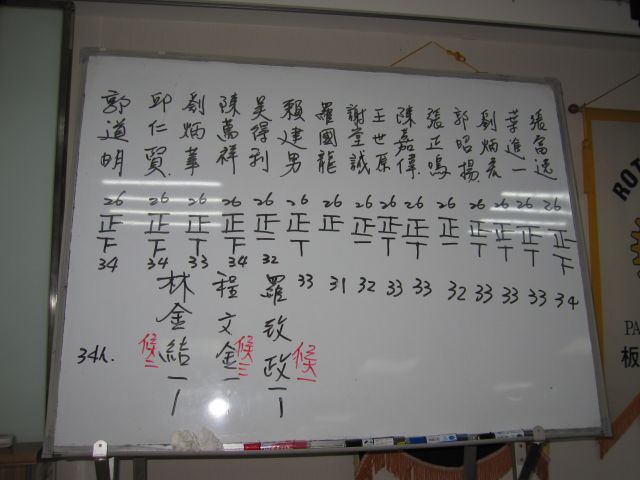 郭道明
邱仁賢
劉炳華
陳萬祥
吳得利
賴建男
羅國龍
謝堂誠
王世原
陳嘉偉
張正鳴
郭昭揚
劉炳宏
葉進一
張富逸
26 26 26 26 26 26 26 26 26 26 26 26 26 26 26
正 正 正 正 正 正 正 正 正 正 正 正 正 正 正
下 下 丅 下 一 丅 一 丅 丅 一 丅 丅 丅 下
34 34 33 34 32 33 31 32 33 33 32 33 33 33 34
林金結一丨
程文金一
羅致政一丨
候二
候三
候一
34人.
ROT
PA
板